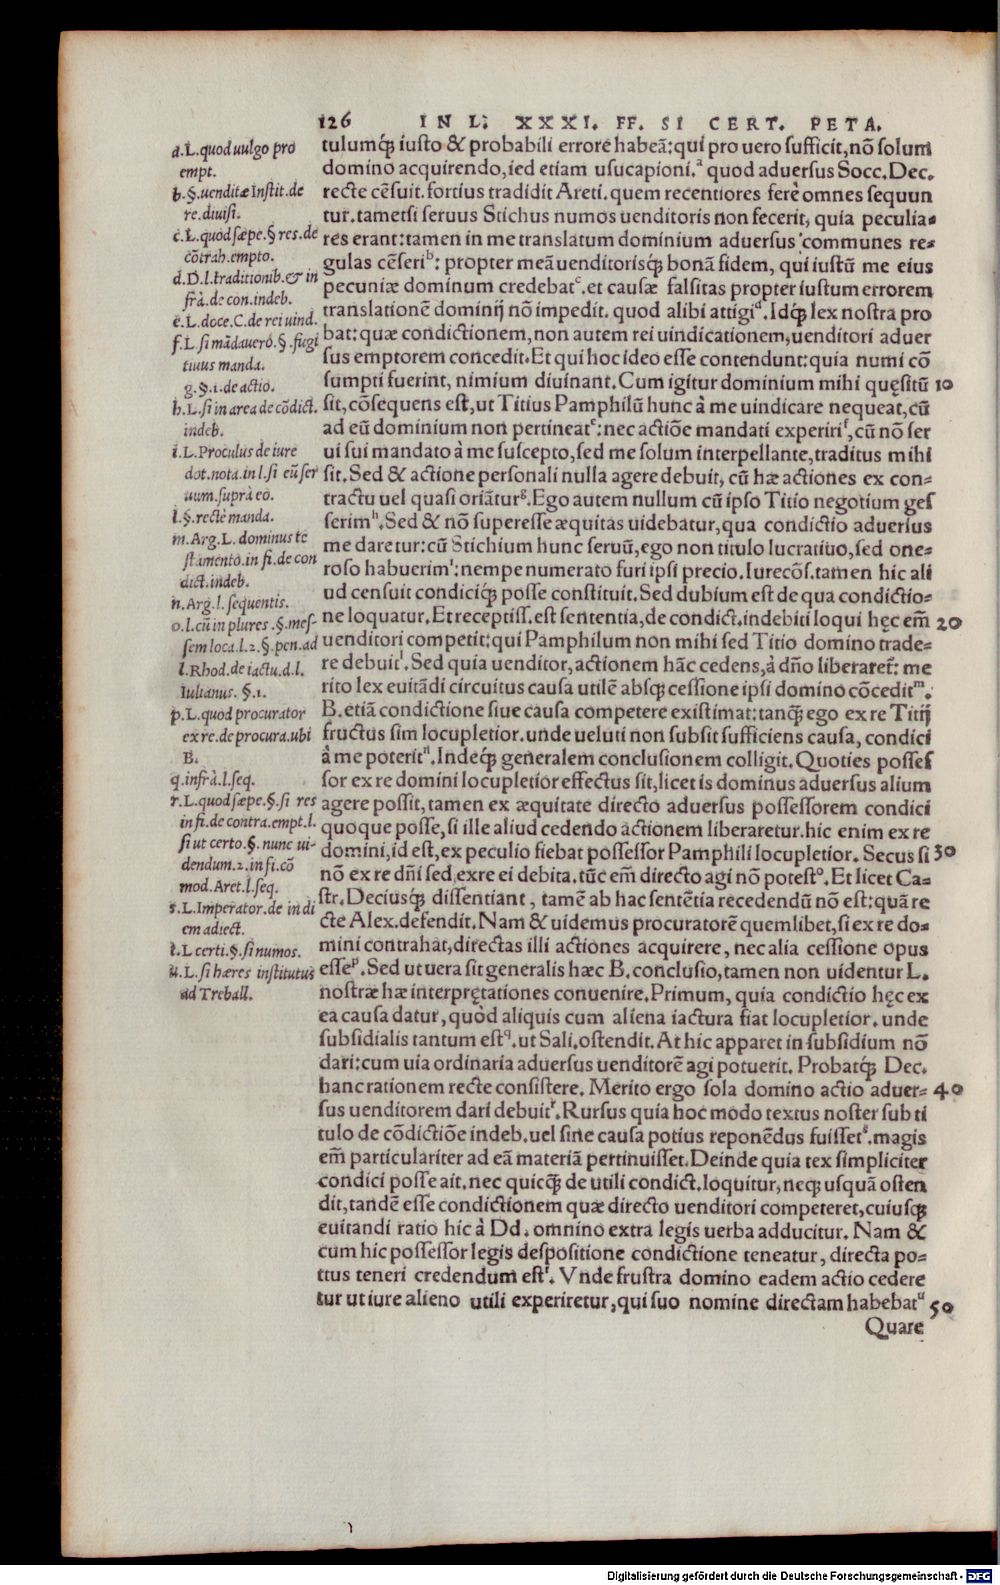 126 IN L. XXXI. FF. SI CERT. PETA.
a.L.quod uulgo pro
empt.
b.§.uenditæ Instit.de
re.diuisi.
c.L.quod sæpe.§ res.de
cõtrah.empto.
d.D.l.traditionib.& in
frà.de con.indeb.
e.L.doce.C.de rei uind.
f.L.si mãdauero.§.fugi
tiuus manda.
g.§.1.de actio.
h.L.si in area de cõdict.
indeb.
i.L.Proculus de iure
dot.nota.in l.si eũ ser
uum.suprà eo.
l.§.rectè manda.
m.Arg.L.dominus te
stamento.in fi.de con
dict.indeb.
n.Arg.l.sequentis.
o.l.cũ in plures.§.mes-
sem loca.l.2.§.pen.ad
l.Rhod.de iactu.d.l.
Iulianus.§.1.
p.L.quod procurator
ex re.de procura.ubi
B.
q.infrà.l.seq.
r.L.quod sæpe.§.si res
in fi.de contra.empt.l.
si ut certo.§.nunc ui-
dendum.2.in fi.cõ
mod.Aret.l.seq.
s.L.Imperator.de in di
em adiect.
t.L certi.§.si numos.
u.L.si hæres institutus
ad Treball.
tulumq́ꝫ iusto & probabili errore habeã:qui pro uero sufficit,nõ solum
domino acquirendo,sed etiam usucapioni.ᵃ quod aduersus Socc.Dec.
recte cẽsuit.fortius tradidit Areti.quem recentiores ferè omnes sequun
tur.tametsi seruus Stichus numos uenditoris non fecerit, quia peculia-
res erant:tamen in me translatum dominium aduersus communes re-
gulas cẽseriᵇ: propter meã uenditorisq́ꝫ bonã fidem, qui iustũ me eius
pecuniæ dominum credebatᶜ.et causæ falsitas propter iustum errorem
translationẽ dominij nõ impedit. quod alibi attigiᵈ.Idq́ꝫ lex nostra pro
bat:quæ condictionem,non autem rei uindicationem,uenditori aduer
sus emptorem concedit.Et qui hoc ideo esse contendunt:quia numi cõ
sumpti fuerint, nimium diuinant.Cum igitur dominium mihi quęsitũ 10
sit,cõsequens est,ut Titius Pamphilũ hunc à me uindicare nequeat,cũ
ad eũ dominium non pertineatᵉ:nec actiõe mandati expeririᶠ,cũ nõ ser
ui sui mandato à me suscepto,sed me solum interpellante,traditus mihi
sit.Sed & actione personali nulla agere debuit, cũ hæ actiones ex con-
tractu uel quasi oriãturᵍ.Ego autem nullum cũ ipso Titio negotium ges
serimʰ.Sed & nõ superesse æquitas uidebatur,qua condictio aduersus
me daretur:cũ Stichium hunc seruũ,ego non titulo lucratiuo,sed one-
roso habuerimⁱ:nempe numerato furi ipsi precio.Iurecõs.tamen hic ali
ud censuit condiciq́ꝫ posse constituit.Sed dubium est de qua condictio-
ne loquatur.Et receptiss.est sententia,de condict.indebiti loqui hęc em̃ 20
uenditori competit:qui Pamphilum non mihi sed Titio domino trade-
re debuitˡ.Sed quia uenditor,actionem hãc cedens,à dño liberaret̃: me
rito lex euitãdi circuitus causa utilẽ absq́ꝫ cessione ipsi domino cõceditᵐ.
B.etiã condictione siue causa competere existimat:tanq̃ꝫ ego ex re Titij
fructus sim locupletior.unde ueluti non subsit sufficiens causa, condici
à me poteritⁿ.Indeq́ꝫ generalem conclusionem colligit.Quoties posses
sor ex re domini locupletior effectus sit,licet is dominus aduersus alium
agere possit,tamen ex æquitate directo aduersus possessorem condici
quoque posse,si ille aliud cedendo actionem liberaretur.hic enim ex re
domini,id est,ex peculio fiebat possessor Pamphili locupletior. Secus si 30
nõ ex re dñi sed,exre ei debita.tũc em̃ directo agi nõ potestᵒ.Et licet Ca-
str.Deciusq́ꝫ dissentiant, tamẽ ab hac sentẽtia recedendũ nõ est:quã re
cte Alex.defendit.Nam & uidemus procuratorẽ quemlibet,si ex re do-
mini contrahat,directas illi actiones acquirere, nec alia cessione opus
esseᵖ.Sed ut uera sit generalis hæc B.conclusio,tamen non uidentur L.
nostræ hæ interpretationes conuenire.Primum, quia condictio hęc ex
ea causa datur, quòd aliquis cum aliena iactura fiat locupletior.unde
subsidialis tantum est^q.ut Sali.ostendit.At hic apparet in subsidium nõ
dari:cum uia ordinaria aduersus uenditorẽ agi potuerit. Probatq́ꝫ Dec.
hanc rationem recte consistere. Merito ergo sola domino actio aduer- 40
sus uenditorem dari debuitʳ.Rursus quia hoc modo textus noster sub ti
tulo de cõdictiõe indeb.uel sine causa potius reponẽdus fuissetˢ.magis
em̃ particulariter ad eã materiã pertinuisset.Deinde quia tex simpliciter
condici posse ait.nec quicq̃ꝫ de utili condict.loquitur,neqꝫ usquã osten
dit,tandẽ esse condictionem quæ directo uenditori competeret,cuiusq́ꝫ
euitandi ratio hic à Dd. omnino extra legis uerba adducitur. Nam &
cum hic possessor legis despositione condictione teneatur, directa po-
tius teneri credendum estᵗ. Vnde frustra domino eadem actio cedere
tur ut iure alieno utili experiretur,qui suo nomine directam habebatᵘ 50
Quare
Digitalisierung gefördert durch die Deutsche Forschungsgemeinschaft - DFG